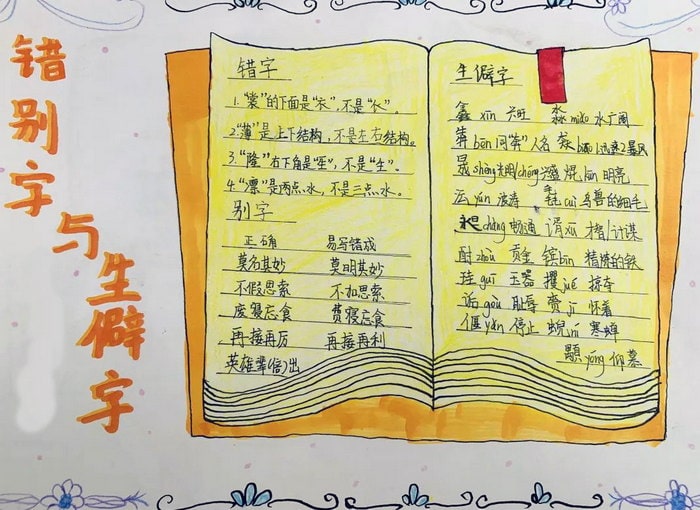 错别字与生僻字
错字
1."裳"的下面是"衣",不是"水"。
2."薄"是上下结构,不是左右结构。
3."隆"右下角是"生",不是"生"。
4."凛"是两点水,不是三点水。
别字
正确 易写错成
莫名其妙 莫明其妙
不假思索 不加思索
废寝忘食 费寝忘食
再接再厉 再接再利
英雄辈(倍)出
生僻字
鑫 xīn 兴旺 淼 miǎo 水广阔
犇 bēn 同"奔"人名 猋 biāo 迅速2暴风
晟 shèng光明/chéng兴盛 焜 kūn 明亮
沄 yún 波涛 毳 cuì 鸟兽的细毛
昶 chǎng 畅通 谞 xū 才智/计谋
酎 zhòu 镔 bīn 精炼的铁
珪 guī 玉器 攫 jué 掠夺
诟 gòu 耻辱 赍 jī 怀着
偃 yǎn 停止 蜺 ní 寒蝉
颙 yóng 仰慕